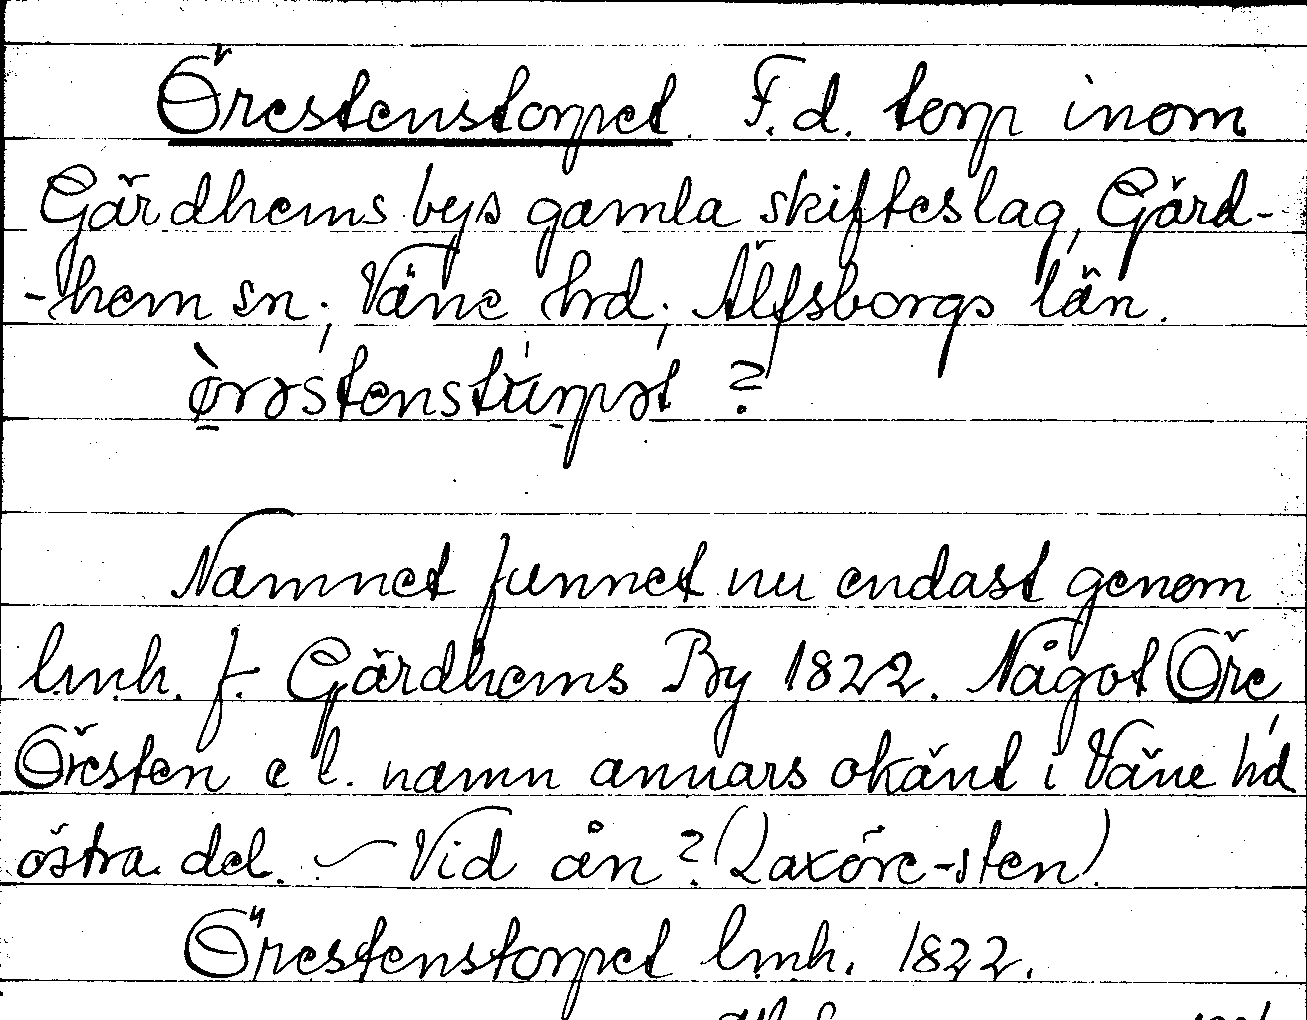 Örestenstorpet. F.d. torp inom
Gärdhems bys gamla skifteslag, Gärd-
-hem sn; Väne hd; Älfsborgs län.
ø̀rəstenstùrpət ?
Namnet funnet nu endast genom
lmh. f. Gärdhems By 1822. Något Öre,
Öresten e l. namn annars okänt i Väne hd
östra del. — Vid ån? (Laxöre-sten)
Örestenstorpet lmh. 1822.